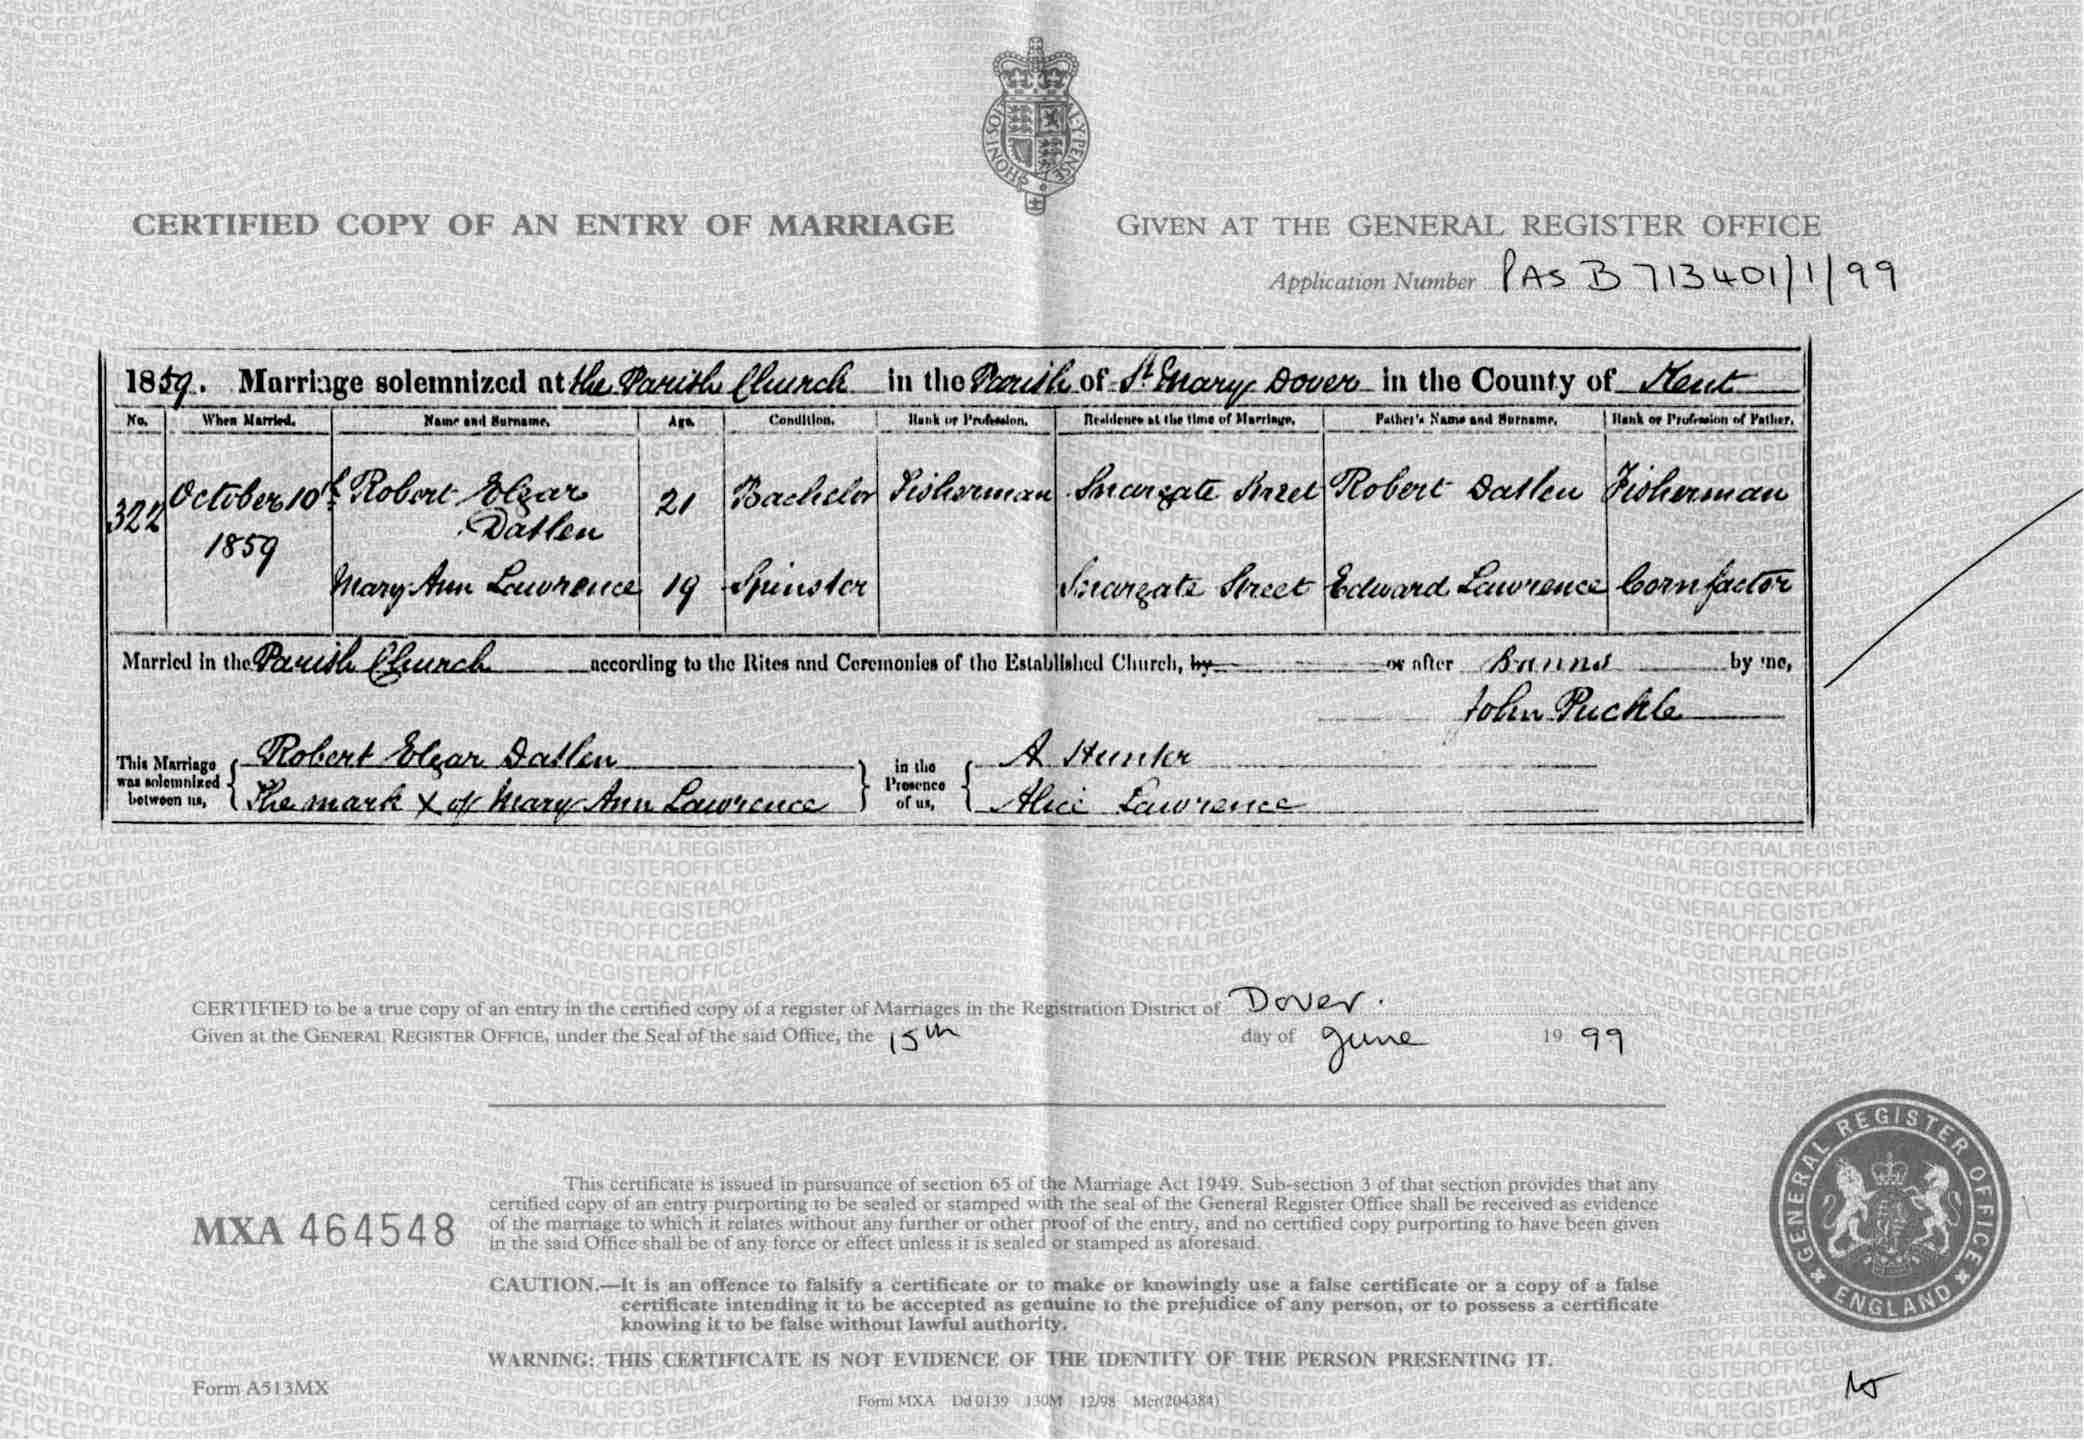 HONI·SOIT Y·PENSE
CERTIFIED COPY OF AN ENTRY OF MARRIAGE
GIVEN AT THE GENERAL REGISTER OFFICE
Application Number PAS B 713401/1/99
1859. Marriage solemnized at the Parish Church in the Parish of St Mary Dover in the County of Kent
No. When Married. Name and Surname. Age. Condition. Rank or Profession. Residence at the time of Marriage. Father's Name and Surname. Rank or Profession of Father.
322 October 10th 1859 Robert Elgar Datlen 21 Bachelor Fisherman Snargate Street Robert Datlen Fisherman
Mary Ann Lawrence 19 Spinster Snargate Street Edward Lawrence Cornfactor
Married in the Parish Church according to the Rites and Ceremonies of the Established Church, by or after Banns by me,
John Puckle
This Marriage was solemnized between us, Robert Elgar Datlen
The mark X of Mary Ann Lawrence
in the Presence of us, A Hunter
Alice Lawrence
CERTIFIED to be a true copy of an entry in the certified copy of a register of Marriages in the Registration District of Dover.
Given at the GENERAL REGISTER OFFICE, under the Seal of the said Office, the 15th day of June 19 99
MXA 464548
This certificate is issued in pursuance of section 65 of the Marriage Act 1949. Sub-section 3 of that section provides that any
certified copy of an entry purporting to be sealed or stamped with the seal of the General Register Office shall be received as evidence
of the marriage to which it relates without any further or other proof of the entry, and no certified copy purporting to have been given
in the said Office shall be of any force or effect unless it is sealed or stamped as aforesaid.
CAUTION.—It is an offence to falsify a certificate or to make or knowingly use a false certificate or a copy of a false
certificate intending it to be accepted as genuine to the prejudice of any person, or to possess a certificate
knowing it to be false without lawful authority.
WARNING: THIS CERTIFICATE IS NOT EVIDENCE OF THE IDENTITY OF THE PERSON PRESENTING IT.
GENERAL REGISTER OFFICE
ENGLAND
Form A513MX
Form MXA Dd 0139 130M 12/98 Mcr(204384)